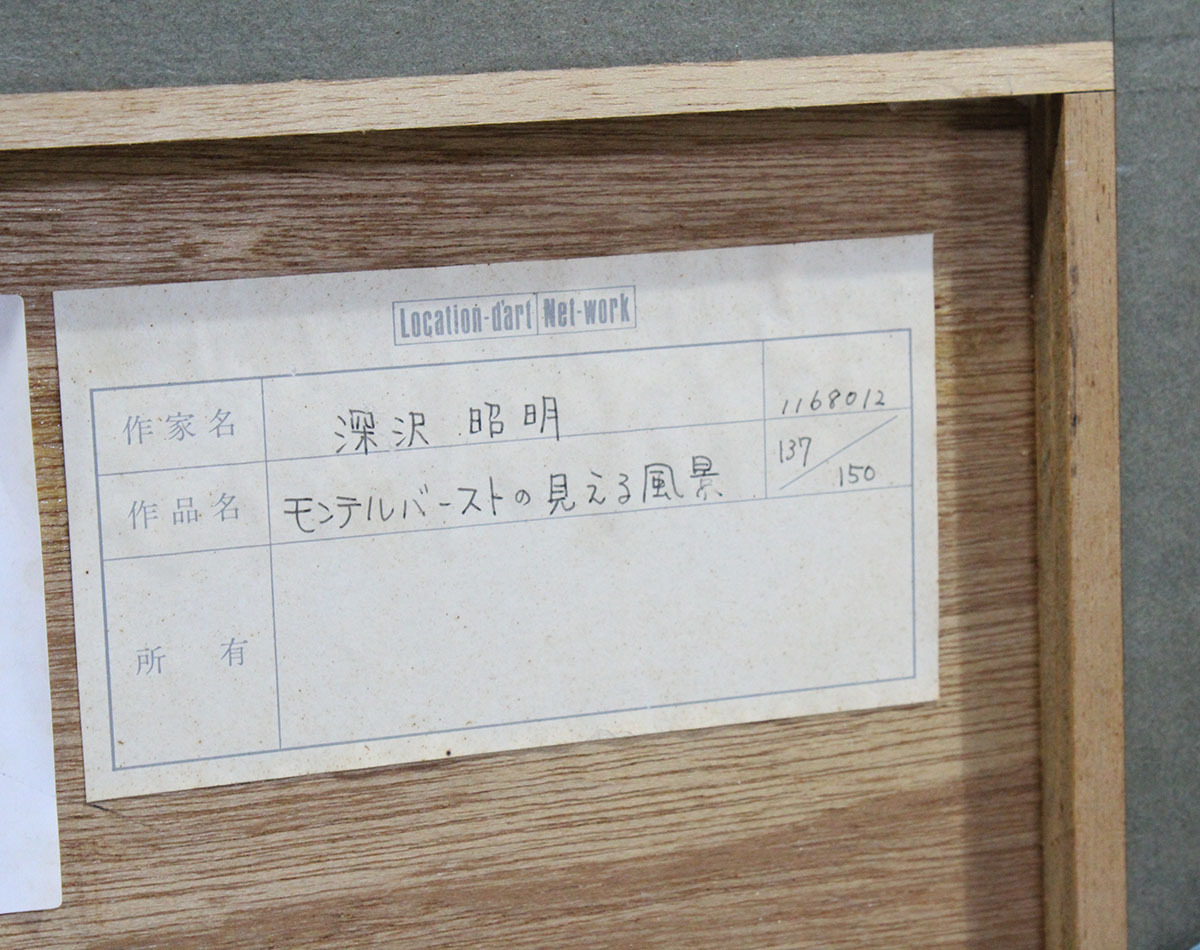 Location-d'art Net-work
作家名 深沢 昭明 1168012
作品名 モンテルバーストの見える風景 137/150
所有